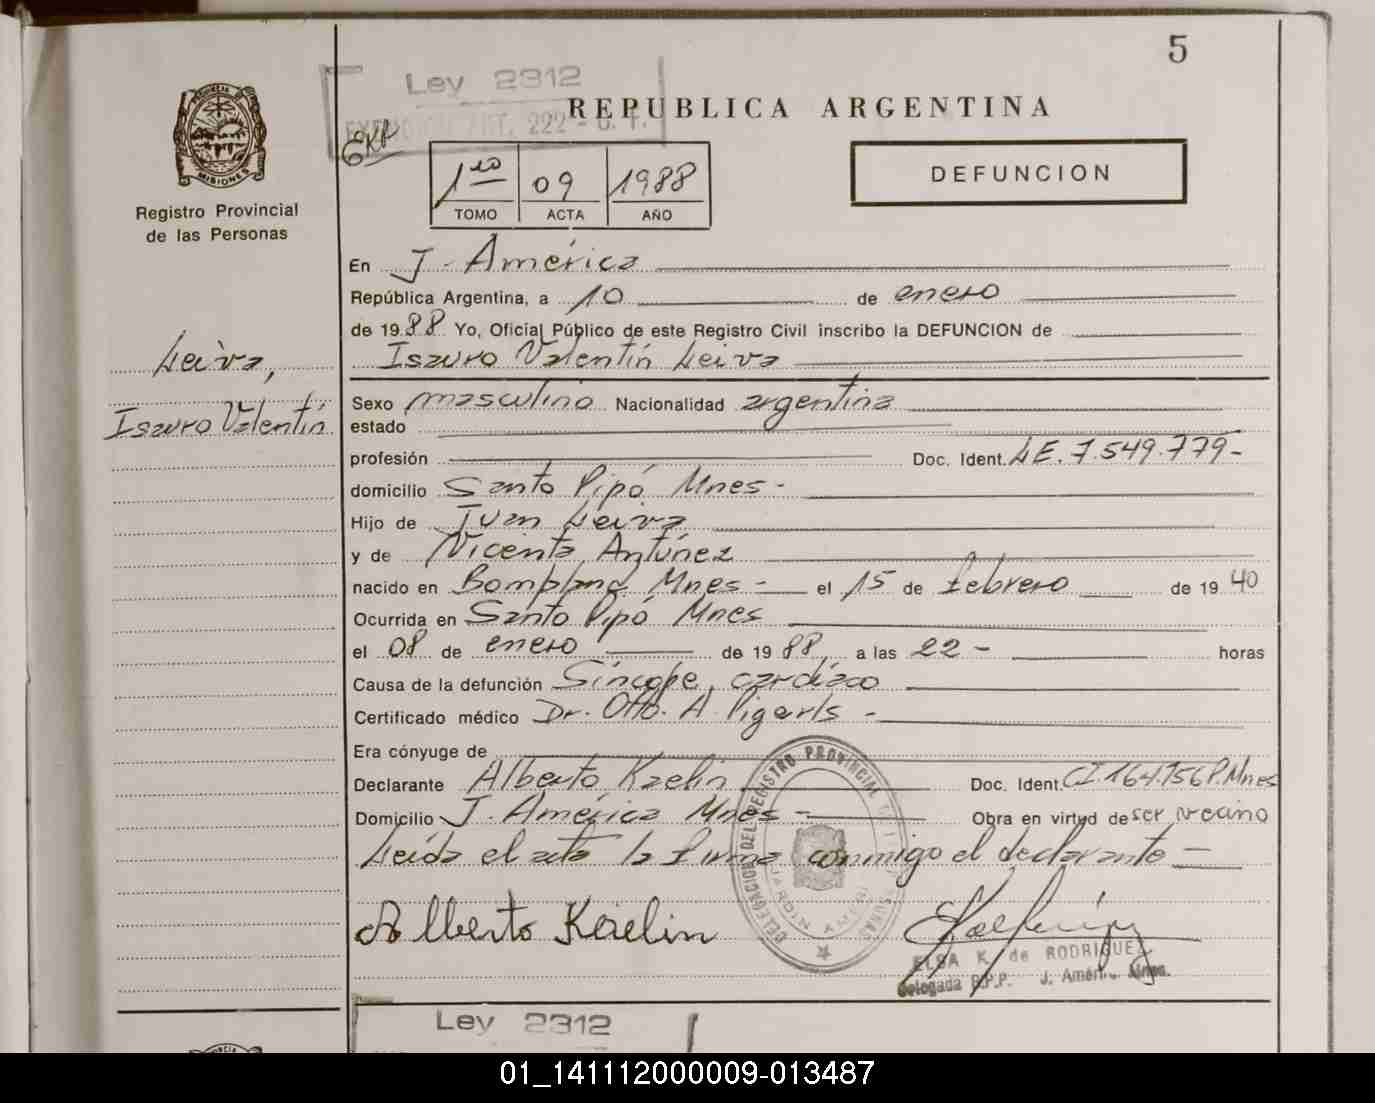 5
Ley 2312
REPUBLICA ARGENTINA
EXENCION ART. 222 - C. F.
EXP
DEFUNCION
1ro 09 1988
TOMO ACTA AÑO
PROVINCIA DE
MISIONES
Registro Provincial
de las Personas
Leiva,
Isauro Valentín
En J. América
República Argentina, a 10 de enero
de 1988 Yo, Oficial Público de este Registro Civil inscribo la DEFUNCION de
Isauro Valentín Leiva
Sexo masculino Nacionalidad argentina
estado
profesión Doc. Ident. LE. 7.549.779-
domicilio Santo Pipó Mnes-
Hijo de Juan Leiva
y de Vicenta Antúnez
nacido en Bompland Mnes- el 15 de febrero de 1940
Ocurrida en Santo Pipó Mnes
el 08 de enero de 1988 a las 22- horas
Causa de la defunción Síncope cardíaco
Certificado médico Dr. Otto A. Pigerls-
Era cónyuge de
Declarante Alberto Kaelin Doc. Ident. CI 164.756 P. Mnes
Domicilio J. América Mnes- Obra en virtud de ser vecino
Leída el acta la firma conmigo el declarante-
Alberto Kaelin
DELEGACION DEL REGISTRO PROVINCIAL DE LAS PERSONAS
JARDIN AMERICA
ELSA K. de RODRIGUEZ
Delegada R.P.P. J. América Mnes.
Ley 2312
01_141112000009-013487